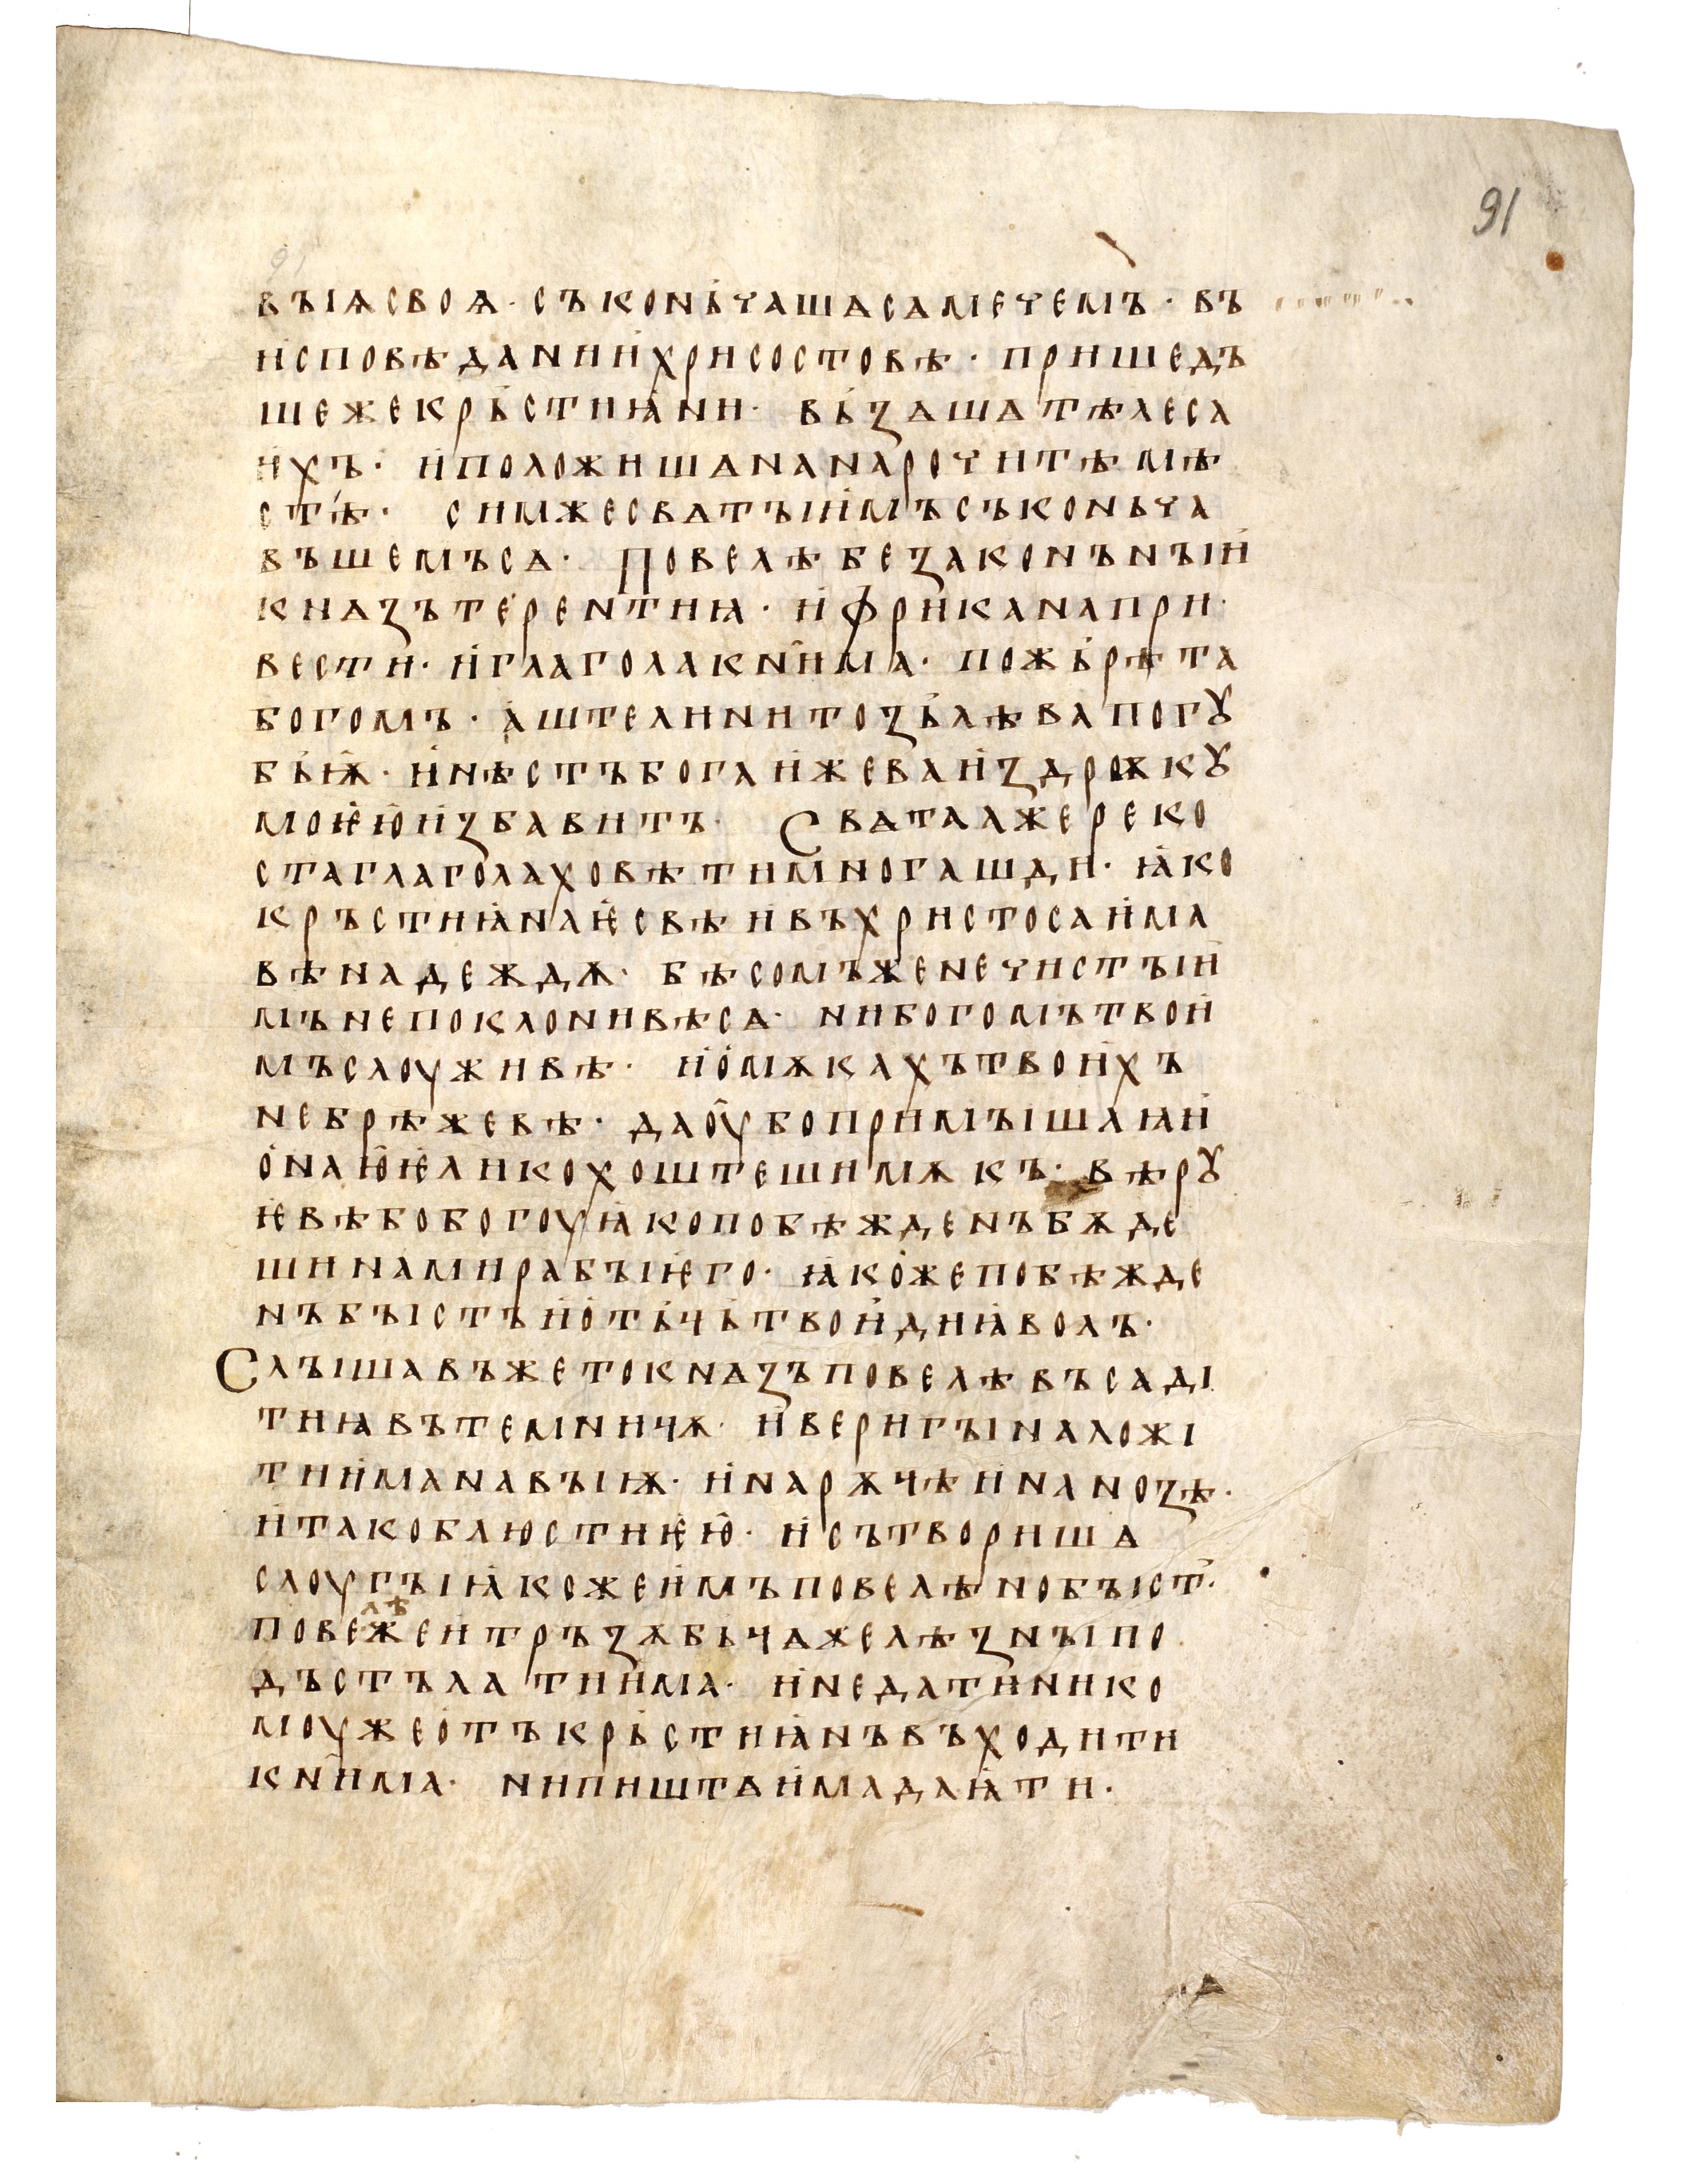 91
вꙑѩ своѩ · съконьчашѧ сѧ мечемь · въ
исповѣдании хрисостовѣ · пришедъ
ше же крьстиꙗни · вьзѧшѧ тѣлеса
ихъ · и положишѧ на нарочитѣ мѣ
стѣ · сим же свѧтꙑимъ съконьча
въшемъ сѧ · Повелѣ безаконънꙑи
кнѧзъ терентиꙗ · и фрикана при·
вести · и глагола к нима · пожьрѣта
богомъ · аште ли ни то зьлѣ ва погꙋ
бьѭ · и нѣстъ бога иже ва из дрѫкꙋ
моѥю избавитъ · Свѧтаа же реко
ста глаголаховѣ ти многашди · ꙗко
кръстиꙗна ѥсвѣ и въ христоса има
вѣ надеждѫ · бѣсомъ же нечистꙑи
мъ не поклонивѣ сѧ · ни богомъ твои
мъ слоуживѣ · и о мѫкахъ твоихъ
небрѣжевѣ · да оубо примꙑшлꙗи
о наю ѥлико хоштеши мѫкъ · вѣрꙋ
ѥвѣ бо богоу ꙗко побѣжденъ бѫде
ши нами рабꙑ ѥго · ꙗкоже побѣжде
нъ бꙑстъ и отьць твои диꙗволъ ·
Слꙑшавъ же то кнѧзъ повелѣ въсади
ти ꙗ въ темницѫ · и веригꙑ наложі
ти има на вꙑѭ · и на рѫцѣ и на нозѣ ·
и тако блюсти ѥю · и сътворишѧ
слоугꙑ ꙗкоже имъ повелѣно бꙑст ·
повелѣ же и тръзѫбьцѧ желѣзнꙑ по
дъстълати има · и не дати ни ко
моуже отъ крьстиꙗнъ въходити
к нима · ни пиштѧ има даꙗти ·